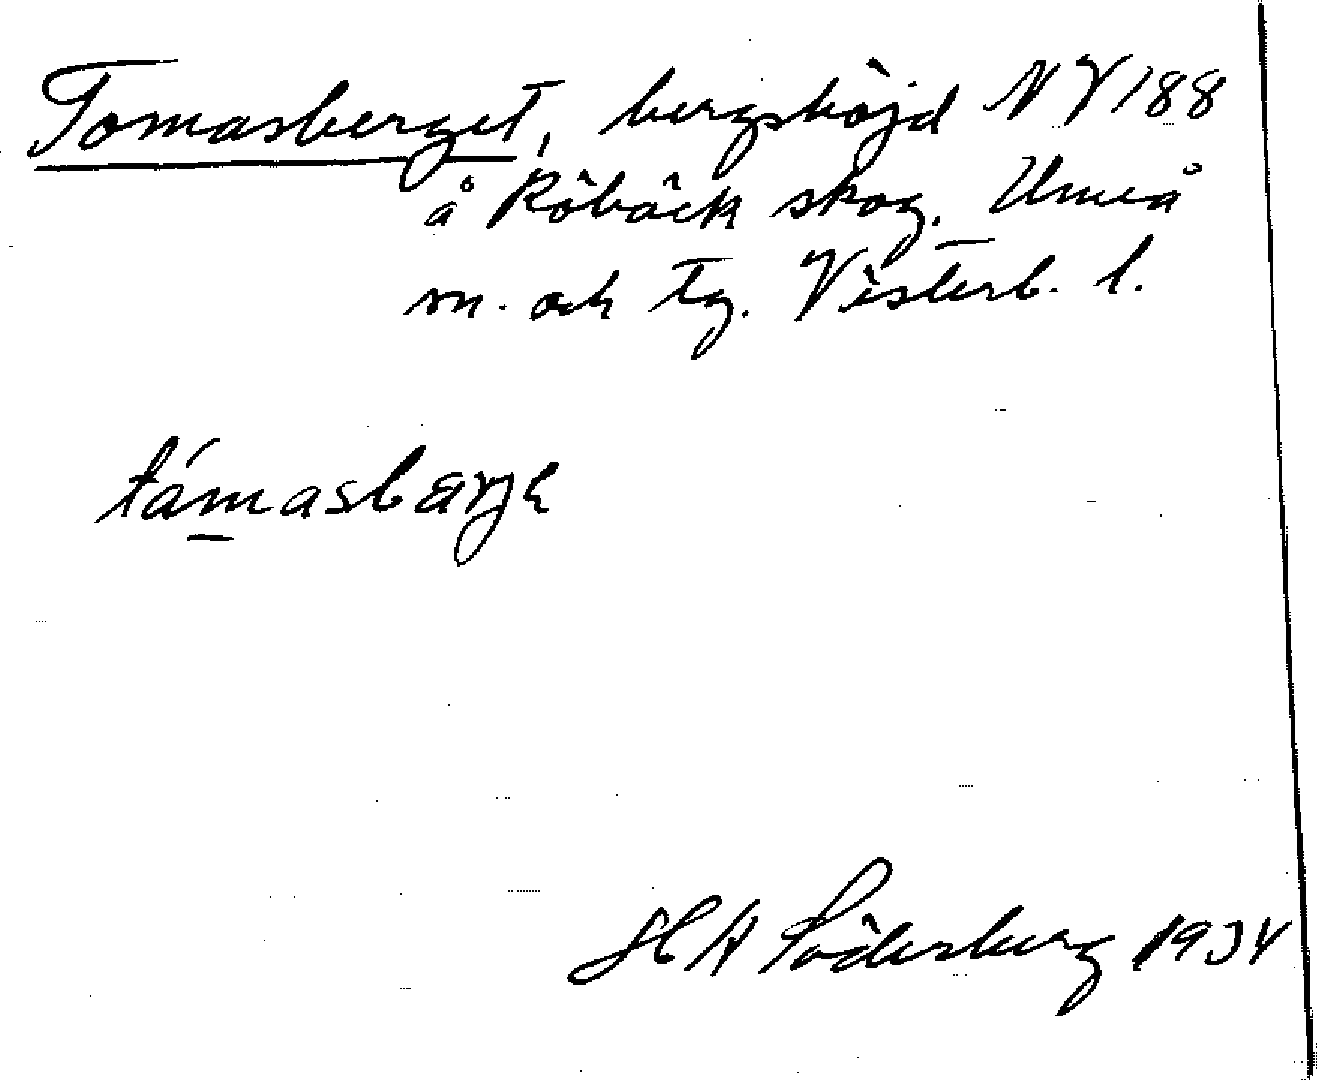 Tomasberget, bergshöjd NV 188
å Röbäck skog. Umeå
sn. och tg. Västerb. l.
támasbärje
H A Söderberg 1934